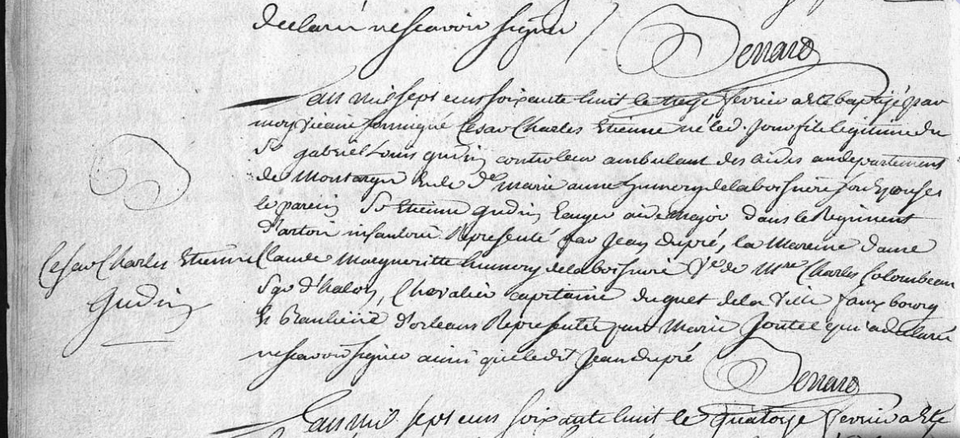 declaré ne scavoir signer
Benard
L'an mil sept cens soixante huit le treize fevrier a eté baptisé par
moy vicaire soussigné Cesar Charles Etienne né led. jour fils legitime du
Sr gabriel Louis gudin controleur ambulant des aides au departement
de Montargis et de de Marie anne humery de la boissiere son Epouse
le parein Sr Etienne gudin Lauger aide major dans le Regiment
d'artois infanterie Représenté par Jean dupré, la Mareine dame
Cesar Charles Etienne
Gudin
Claude Margueritte humery de la boissiere Ve. de Mre Charles Colombeau
Sgr d'halos, Chevalier capitaine du guet de la Ville fauxbourg
& Banlieüe d'orleans Représentée par Marie Joutet qui a declaré
ne scavoir signer ainsi que ledit Jean dupré
Benard
L'an mil sept cens soixante huit le quatorze fevrier a eté